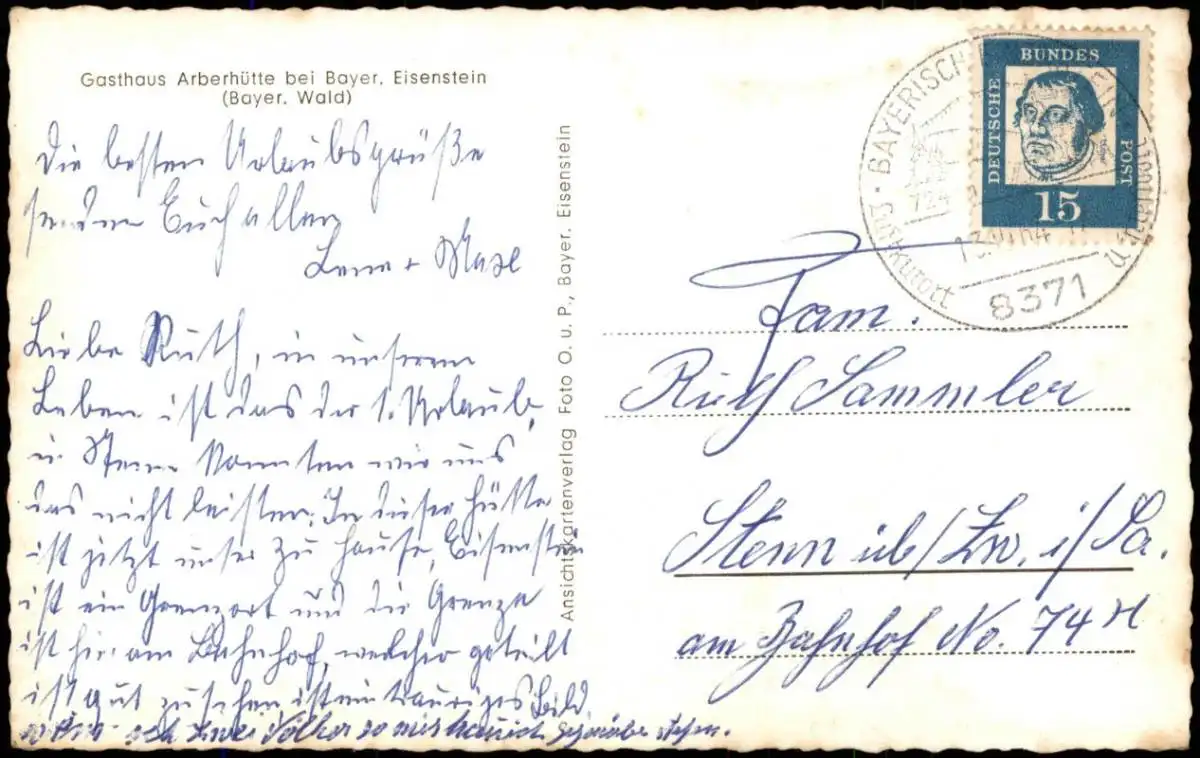 Gasthaus Arberhütte bei Bayer. Eisenstein
(Bayer. Wald)
Die besten Urlaubsgrüße
senden Euch allen
Lene + Maxe
Liebe Ruth, in unserem
Leben ist das der 1. Urlaub,
in Stenn konnten wir uns
das nicht leisten. In dieser Hütte
ist jetzt unser zu Hause, Eisenstein
ist ein Grenzort und die Grenze
ist hier am Bahnhof, welcher geteilt
ist gut zu sehen ist ein trauriges Bild,
zwei Völker so misstrauisch gegenüber stehen.
Ansichtskartenverlag Foto O. u. P., Bayer. Eisenstein
DEUTSCHE
BUNDES
POST
15
BAYERISCH
Luftkurort
8371
Fam.
Ruth Sammler
Stenn üb/Zw. i/Sa.
am Bahnhof No. 74 H